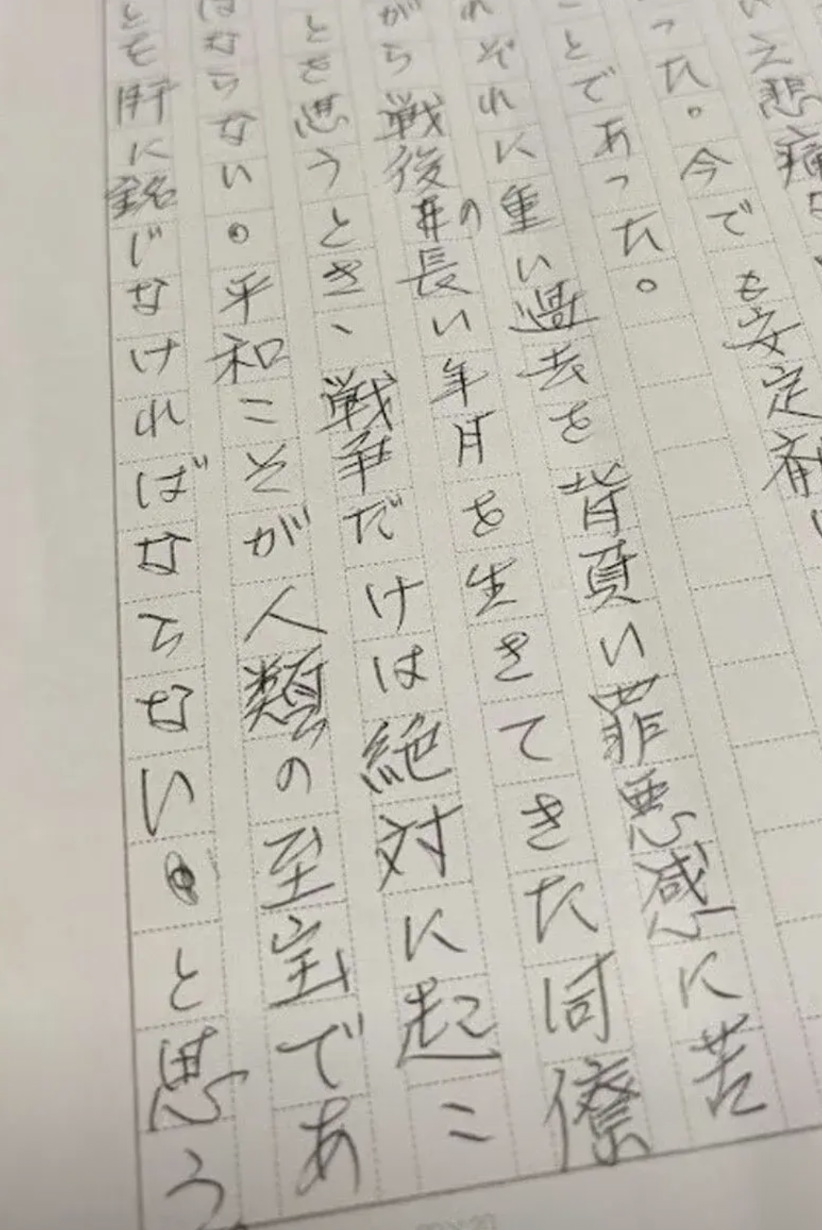 え悲痛な
った。今でも安定剤
ことであった。
れぞれに重い過去を背負い罪悪感に苦
がら戦後の長い年月を生きてきた同僚
とを思うとき、戦争だけは絶対に起こ
はならない。平和こそが人類の至宝であ
とも肝に銘じなければならない。と思う。